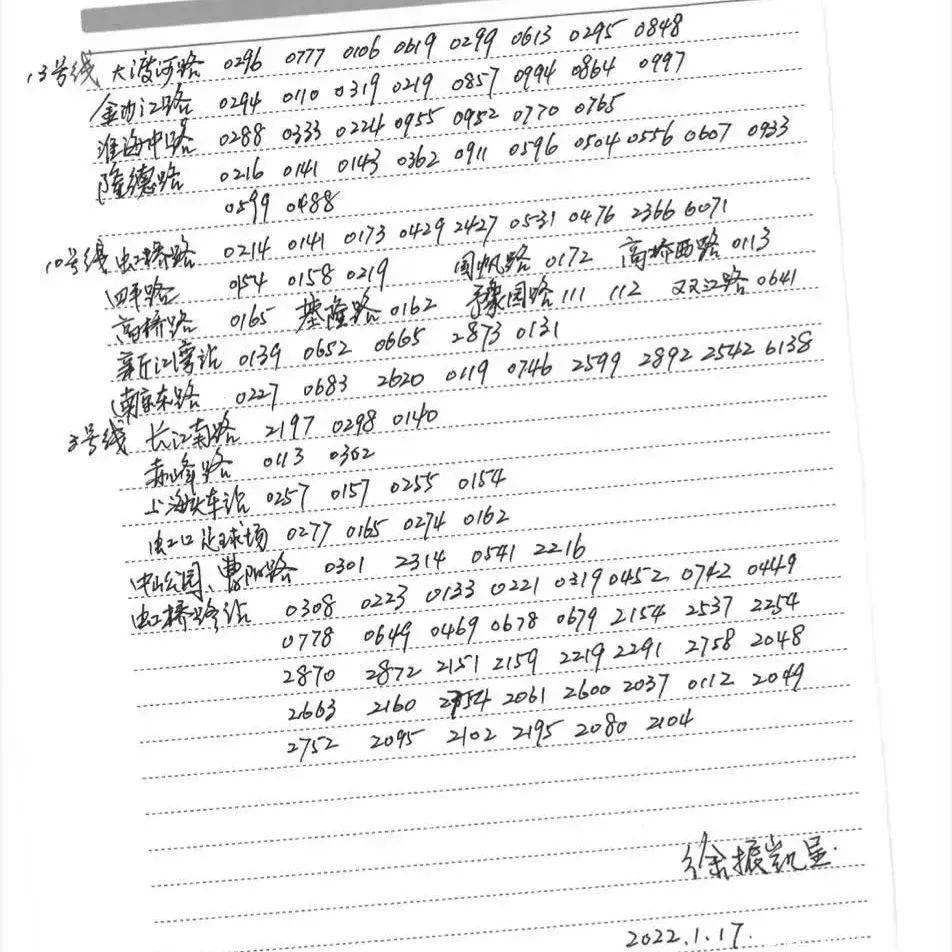 13号线 大渡河路 0296 0777 0106 0619 0299 0613 0295 0848
金沙江路 0294 0110 0319 0219 0857 0994 0864 0997
淮海中路 0288 0333 0224 0955 0952 0770 0765
隆德路 0216 0141 0143 0362 0911 0596 0504 0556 0607 0933
0599 0488
10号线 虹桥路 0214 0141 0173 0429 2427 0531 0476 2366 6071
四平路 0154 0158 0219 国帆路 0172 高桥西路 0113
高桥路 0165 基隆路 0162 豫园路 111 112 双江路 0641
新江湾站 0139 0652 0665 2873 0131
南京东路 0227 0683 2620 0119 0746 2599 2892 2542 6138
3号线 长江南路 2197 0298 0140
赤峰路 0113 0302
上海火车站 0257 0157 0255 0154
虹口足球场 0277 0165 0274 0162
中山公园、曹阳路 0301 2314 0541 2216
虹桥路站 0308 0223 0133 0221 0319 0452 0742 0449
0778 0649 0469 0678 0679 2154 2537 2254
2870 2872 2151 2159 2219 2291 2758 2048
2663 2160 2754 2061 2600 2037 0112 2049
2752 2095 2102 2195 2080 2104
徐振凯呈.
2022.1.17.